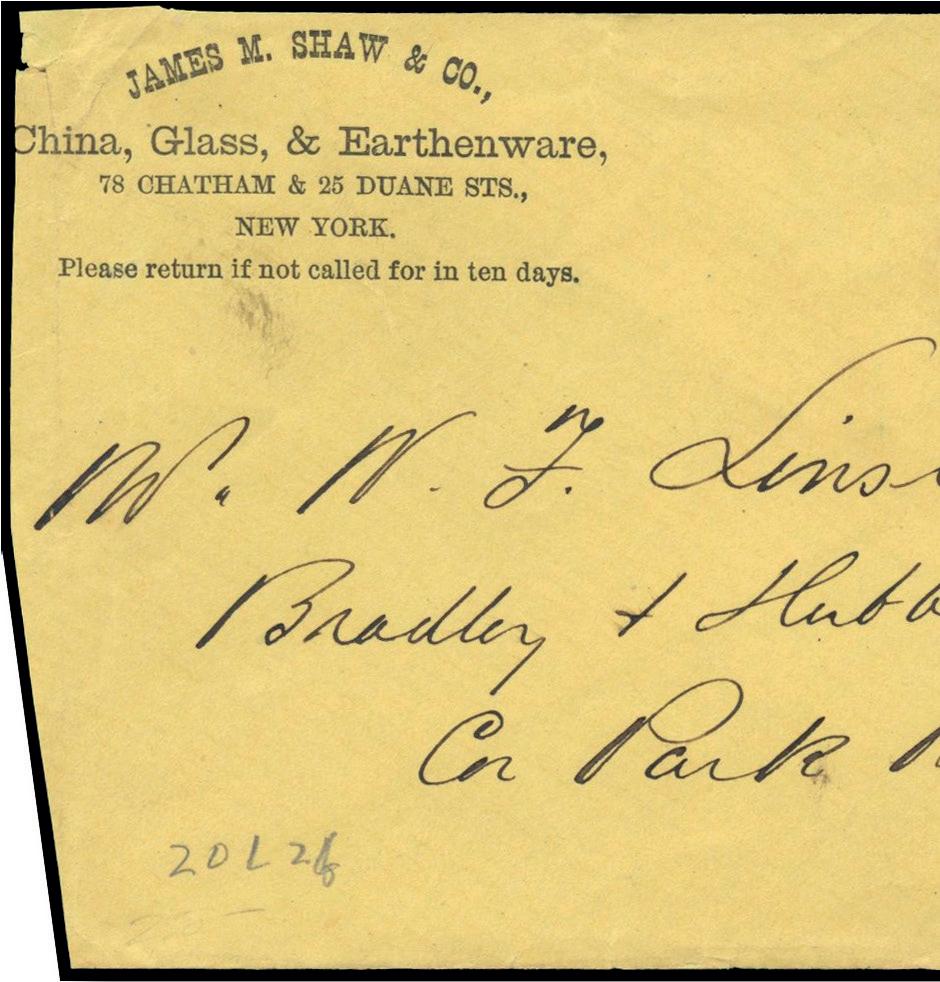 JAMES M. SHAW & CO.,
China, Glass, & Earthenware,
78 CHATHAM & 25 DUANE STS.,
NEW YORK.
Please return if not called for in ten days.
Mr. W. F. Lins
Bradley & Hubb
Cor Park
20L26